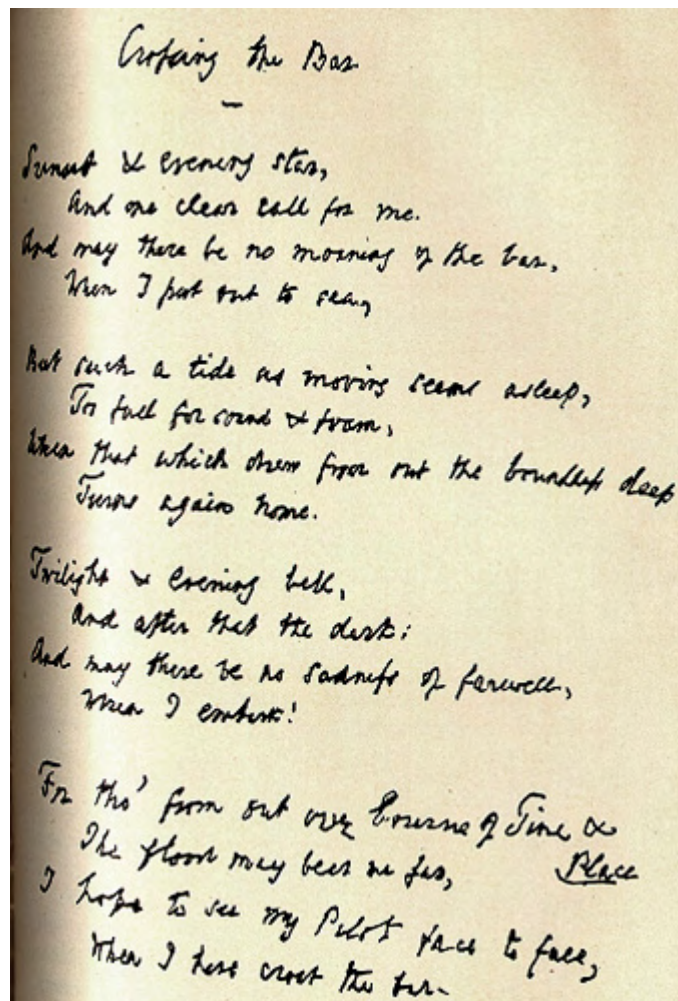 Crossing the Bar
Sunset & evening star,
And one clear call for me.
And may there be no moaning of the bar,
When I put out to sea,
But such a tide as moving seems asleep,
Too full for sound & foam,
When that which drew from out the boundless deep
Turns again home.
Twilight & evening bell,
And after that the dark:
And may there be no sadness of farewell,
When I embark!
For tho' from out our Bourne of Time &
Place
The flood may bear me far,
I hope to see my Pilot face to face,
When I have crost the bar.